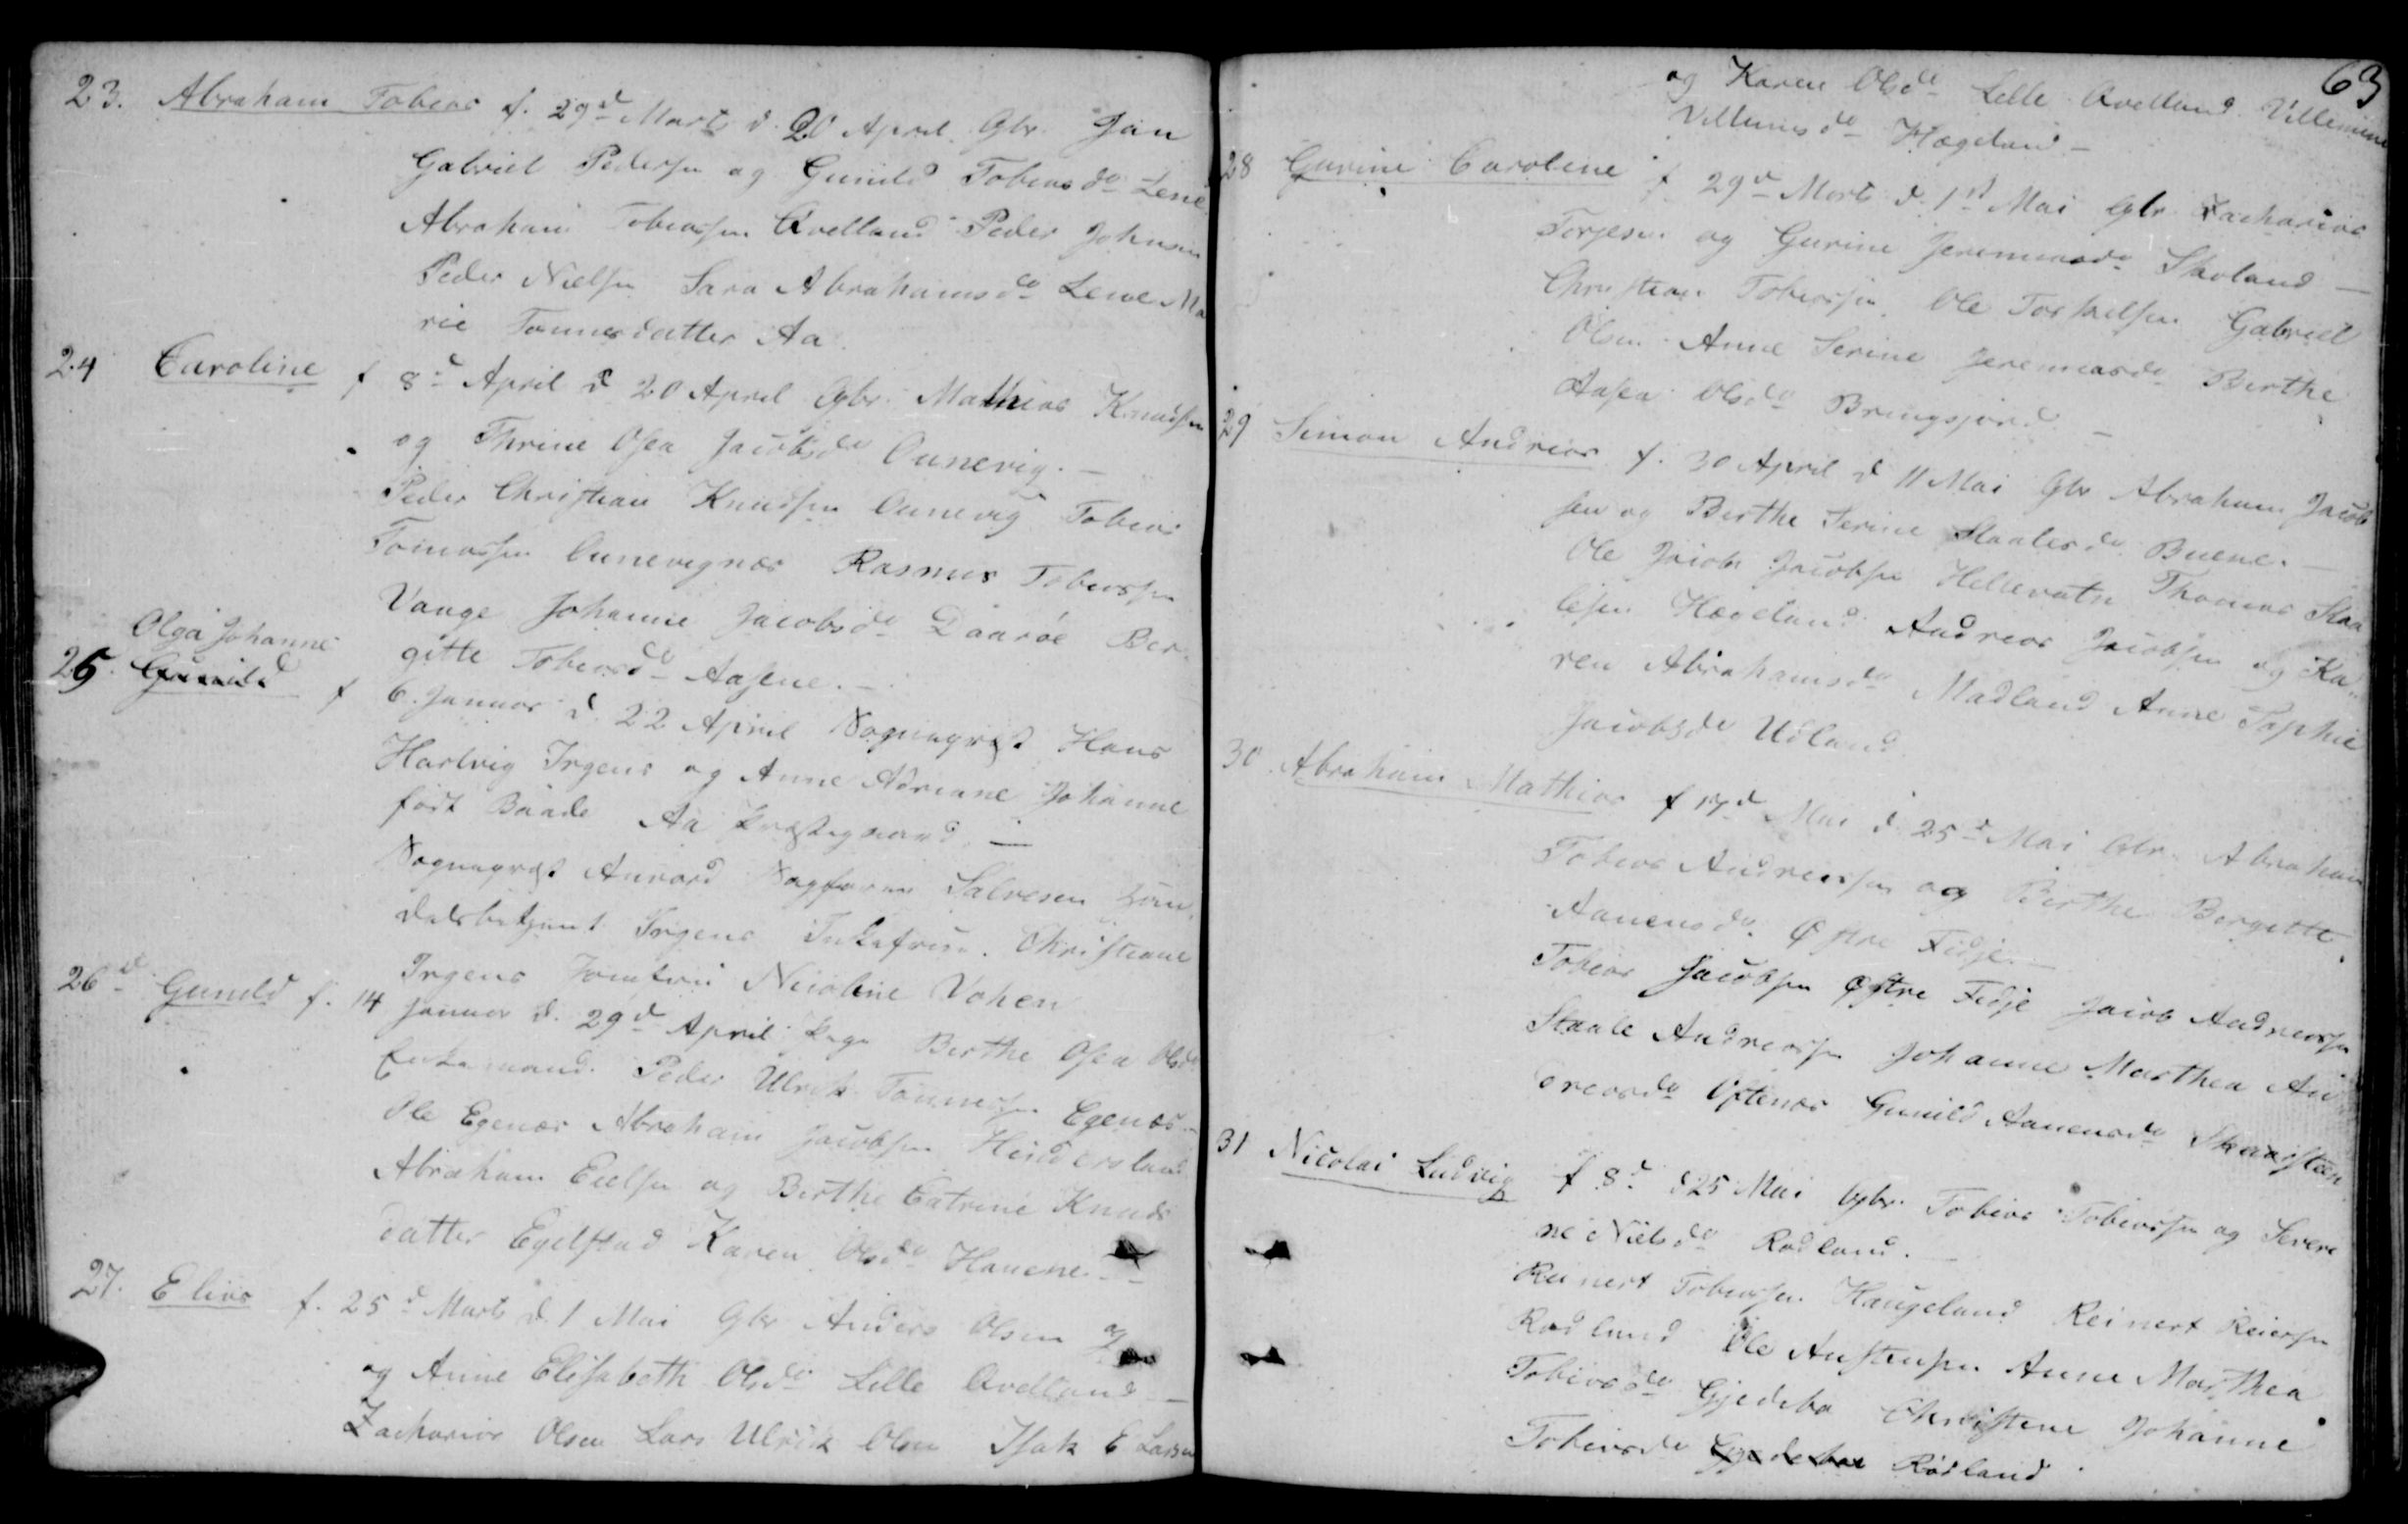 23. Abraham Tobias f. 29d Marts d. 20 April. Gbr. Jan
Gabriel Pedersen og Gunild Tobiasdr Lene
Abraham Tobiassen Qvelland Peder Johnsen
Peder Nielsen Sara Abrahamsdr Lene Ma
rie Tønnesdatter Aa.
24 Caroline f 8d April d 20 April Gbr. Mathias Knudsen
og Thrine Osea Jacobsdr Ounevig. —
Peder Christian Knudsen Ounevig Tobias
Tomassen Ounevignæs Rasmus Tobiassen
Vange Johanne Jacobsdr Daarøe Ber
gitte Tobiasdr Aasene. —
Olga Johanne
25. Gunild f 6. Januar d. 22 April Sognepræst Hans
Hartvig Irgens og Anne Adriane Johanne
født Baade Aa Præstegaard. —
Sognepræst Sagfører Salvesen Han
delsbetjent Irgens Christiane
Irgens Jomfru Nicoline
26d Gunild f. 14 Januar d. 29d April Pige Berthe Osea Olsdr
Enkemand Peder Ulrik Tønnessen Egenæs —
Ole Egenæs Abraham Jacobsen
Abraham Eielsen og Berthe Catrine Knuds
datter Egelstad Karen Olsdr Hauene. —
27. Elias f. 25d Marts d. 1 Mai Gbr Anders Olsen og
og Anne Elisabeth Olsdr Lille Qvelland —
Zacharias Olsen Lars Ulrik Olsen Isak E Larsen
63
og Karen Olsdr Lille Qvelland Villemine
Villumsdr Hægeland —
28 Gurine Caroline f 29d Marts d. 1st Mai Gbr. Zacharias
Torjesen og Gurine Jeremiasdr Skoland —
Christian Tobiassen Ole Torkelsen Gabriel
Olsen Anne Serine Jeremiasdr Berthe
Aasea Olsdr Bringsjord —
29 Simon Andreas f. 30 April d 11 Mai Gbr Abraham Jacob
sen og Berthe Serine Staalesdr Buene. —
Ole Jacob Jacobsen Hellevatn Thomas Staa
lesen Hægeland Andreas Jacobsen og Ka
ren Abrahamsdr Madland Anne Sophie
Jacobsdr Udland
30. Abraham Mathias f 17d Mai d. 25d Mai Gbr. Abraham
Tobias Andreassen og Berthe Bergitte
Aanensdr Østre Fidje. —
Tobias Jacobsen Østre Fidje Jacob Andreassen
Staale Andreassen Johanne Marthea An
dreasdr Oftenæs Gunild Aanensdr
31 Nicolai Ludvig f 8d d 25 Mai Gbr. Tobias Tobiassen og Severe
ne Nielsdr Rødland. —
Reinert Tobiassen Haugeland Reinert Reiersen
Rødland Ole Austensen Anne Marthea
Tobiasdr Gjedebo Christene Johanne
Tobiasdr Gjedeboe Rødland.